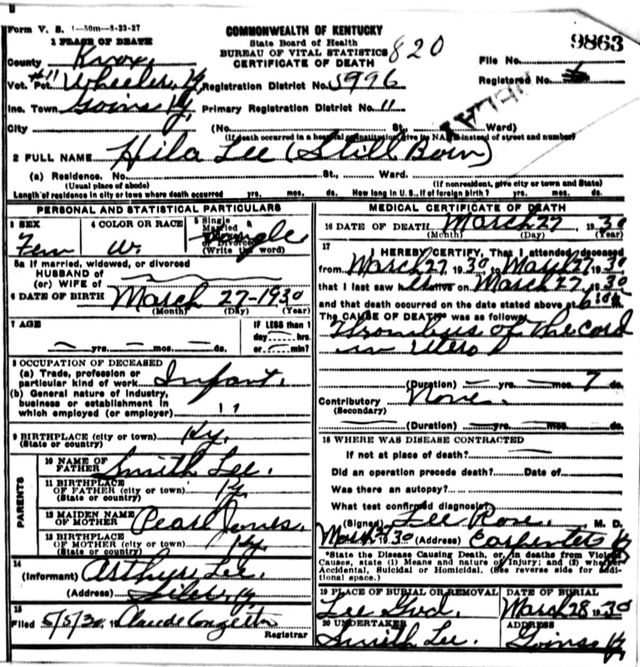 Form V. S. 1-50m-8-23-27
COMMONWEALTH OF KENTUCKY
State Board of Health
BUREAU OF VITAL STATISTICS
CERTIFICATE OF DEATH
820
File No. 9863
Registered No.
1 PLACE OF DEATH
County Knox
Vot. Pct. #11 Wheeler, Ky Registration District No. 5996
Inc. Town Goins Ky. Primary Registration District No. 11
City (No. St. Ward)
(If death occurred in a hospital or institution give its NAME instead of street and number)
2 FULL NAME Hila Lee (Still Born)
(a) Residence. No. St., Ward.
(Usual place of abode) (If nonresident, give city or town and State)
Length of residence in city or town where death occurred yrs. mos. ds. How long in U. S., if of foreign birth? yrs. mos. ds.
PERSONAL AND STATISTICAL PARTICULARS
3 SEX Fem
4 COLOR OR RACE W.
5 Single
Married
or Divorced
(Write the word)
Single
5a If married, widowed, or divorced
HUSBAND of
(or) WIFE of
6 DATE OF BIRTH March 27-1930
(Month) (Day) (Year)
7 AGE yrs. mos. ds.
IF LESS than 1
day hrs.
or min?
8 OCCUPATION OF DECEASED
(a) Trade, profession or
particular kind of work Infant.
(b) General nature of industry,
business or establishment in
which employed (or employer) "
9 BIRTHPLACE (city or town) Ky.
(State or country)
PARENTS
10 NAME OF
FATHER Smith Lee.
11 BIRTHPLACE
OF FATHER (city or town) Ky.
(State or country)
12 MAIDEN NAME
OF MOTHER Pearl Jones.
13 BIRTHPLACE
OF MOTHER (city or town) Ky.
(State or country)
14
(Informant) Arthur Lee.
(Address) Siler, Ky.
15
Filed 5/5/30, 19 Claude
Registrar
MEDICAL CERTIFICATE OF DEATH
16 DATE OF DEATH March 27, 1930
(Month) (Day) (Year)
17
I HEREBY CERTIFY, That I attended deceased
from March 27 1930, to March 27 1930
that I last saw h alive on March 27, 1930
and that death occurred on the date stated above at 6:
The CAUSE OF DEATH* was as follows:
Thrombus of the cord
in Utero
(Duration) yrs. mos. 7 ds.
Contributory None.
(Secondary)
(Duration) yrs. mos. ds.
18 WHERE WAS DISEASE CONTRACTED
If not at place of death?
Did an operation precede death? Date of
Was there an autopsy?
What test confirmed diagnosis?
(Signed) Lee Rose, M. D.
March 27 1930 (Address) Carpenter Ky
*State the Disease Causing Death, or, in deaths from Violent
Causes, state (1) Means and nature of Injury; and (2) whether
Accidental, Suicidal or Homicidal. (See reverse side for additional space.)
19 PLACE OF BURIAL OR REMOVAL Lee Grd.
DATE OF BURIAL March 28 1930
20 UNDERTAKER Smith Lee.
ADDRESS Goins Ky